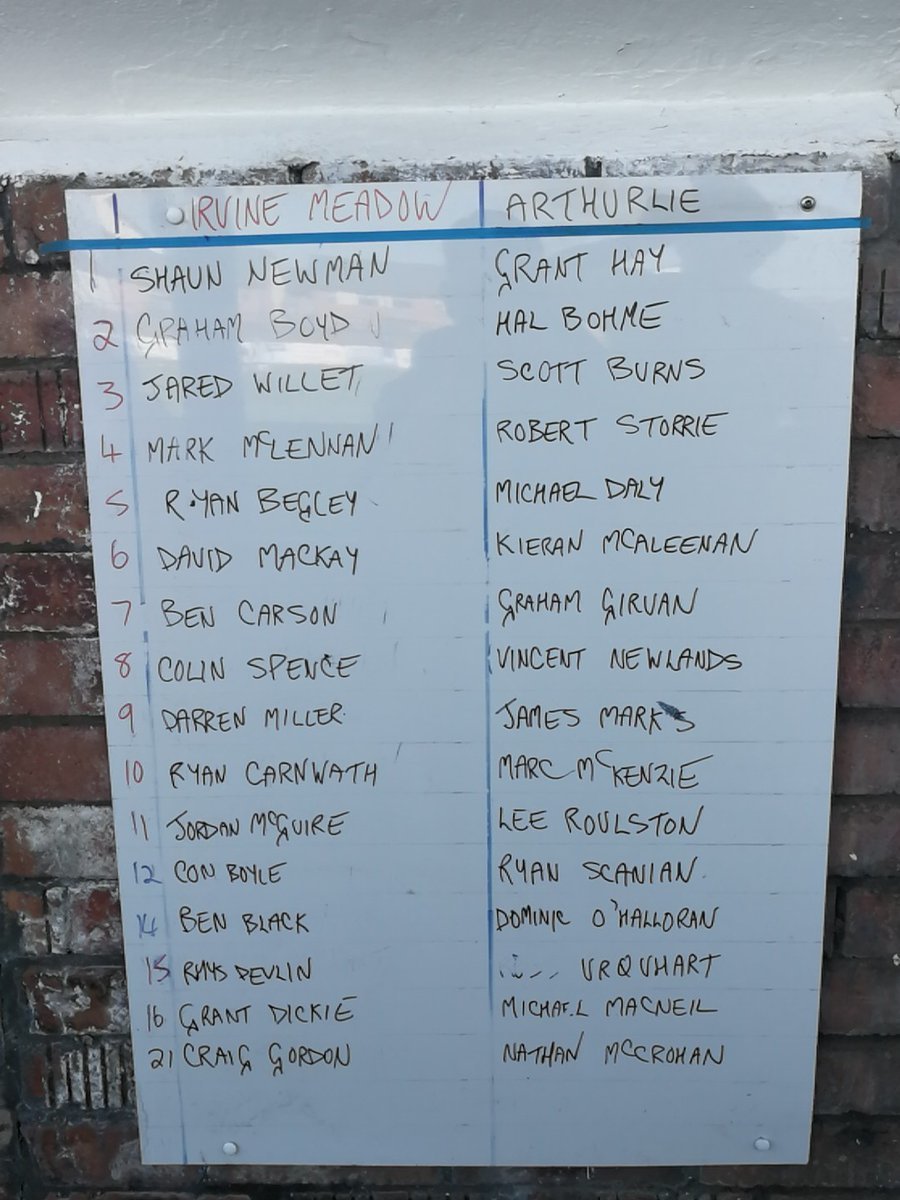 IRVINE MEADOW ARTHURLIE
1 SHAUN NEWMAN GRANT HAY
2 GRAHAM BOYD HAL BOHME
3 JARED WILLET SCOTT BURNS
4 MARK McLENNAN ROBERT STORRIE
5 RYAN BEGLEY MICHAEL DALY
6 DAVID MACKAY KIERAN McALEENAN
7 BEN CARSON GRAHAM GIRVAN
8 COLIN SPENCE VINCENT NEWLANDS
9 DARREN MILLER JAMES MARKS
10 RYAN CARNWATH MARC McKENZIE
11 JORDAN McGUIRE LEE ROULSTON
12 CON BOYLE RYAN SCANIAN
14 BEN BLACK DOMINIC O'HALLORAN
15 RHYS DEVLIN URQUHART
16 GRANT DICKIE MICHAEL MACNEIL
21 CRAIG GORDON NATHAN McCROHAN